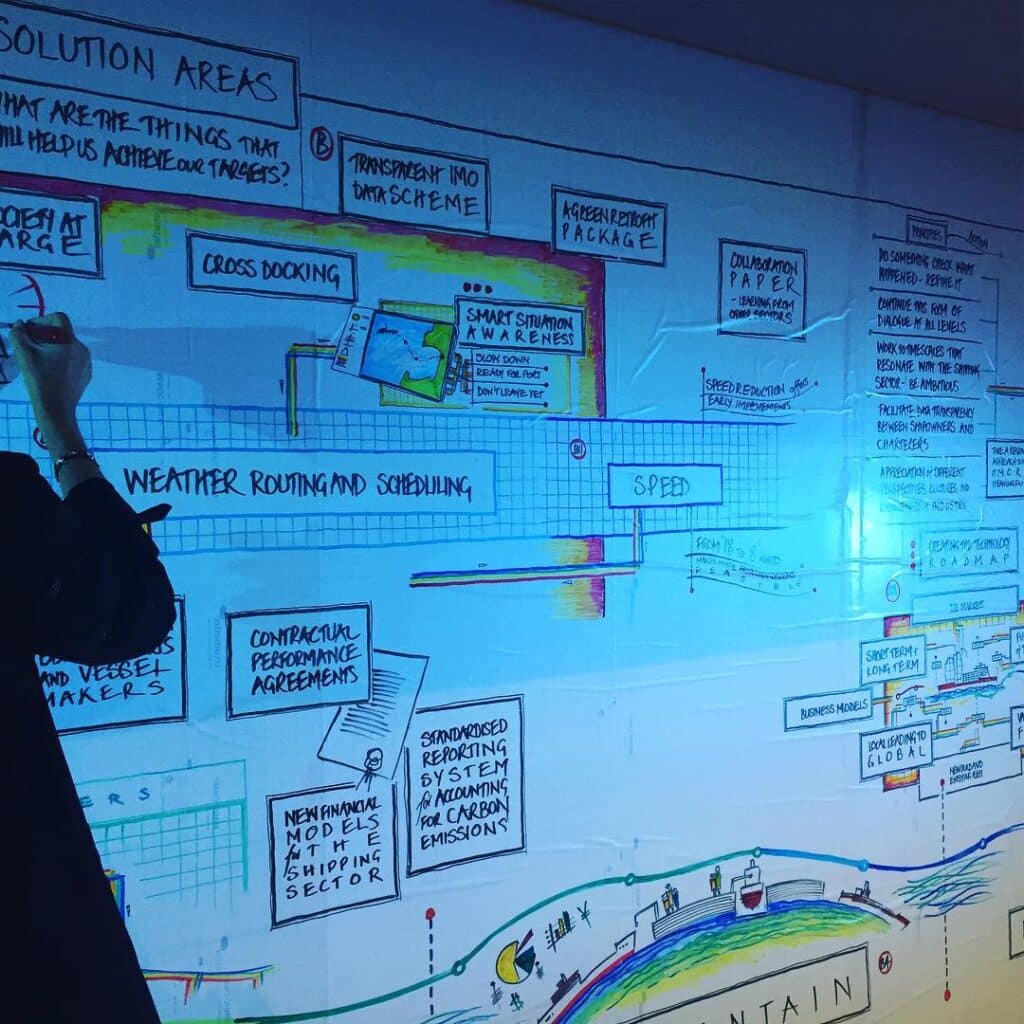 SOLUTION AREAS
WHAT ARE THE THINGS THAT
WILL HELP US ACHIEVE OUR TARGETS?
B
TRANSPARENT IMO
DATA SCHEME
A GREEN RETROFIT
PACKAGE
SOCIETY AT
LARGE
CROSS DOCKING
SMART SITUATION
AWARENESS
SLOW DOWN
READY FOR PORT
DON'T LEAVE YET
COLLABORATION
PAPER
- LEARNING FROM
OTHER SECTORS
SPEED REDUCTION offers
EARLY IMPROVEMENTS
PRINCIPLES
DO SOMETHING CHECK WHAT
HAPPENED - REFINE IT
CONTINUE THIS FORM OF
DIALOGUE AT ALL LEVELS
WORK TO TIMESCALES THAT
RESONATE WITH THE SHIPPING
SECTOR - BE AMBITIOUS
FACILITATE DATA TRANSPARENCY
BETWEEN SHIPOWNERS AND
CHARTERERS
APPRECIATION of DIFFERENT
PERSPECTIVES CULTURES AND
INDUSTRY
WEATHER ROUTING AND SCHEDULING
B1
SPEED
CREATING THIS TECHNOLOGY
ROADMAP
SHORT TERM +
LONG TERM
BUSINESS MODELS
LOCAL LEADING TO
GLOBAL
NEW BUILD AND
EXISTING FLEET
AND VESSEL
MAKERS
CONTRACTUAL
PERFORMANCE
AGREEMENTS
STANDARDISED
REPORTING
SYSTEM
for ACCOUNTING
FOR CARBON
EMISSIONS
NEW FINANCIAL
MODELS
for THE
SHIPPING
SECTOR
ERS
¥
$
B4
NTAIN